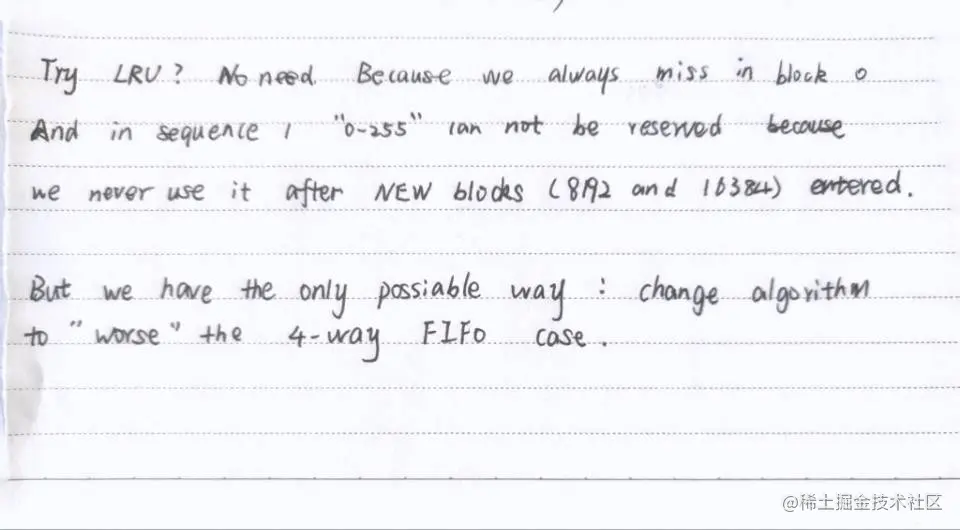 Try LRU? No need. Because we always miss in block 0
And in sequence 1 "0-255" can not be reserved because
we never use it after NEW blocks (8192 and 16384) entered.
But we have the only possiable way : change algorithm
to "worse" the 4-way FIFO case.
@稀土掘金技术社区